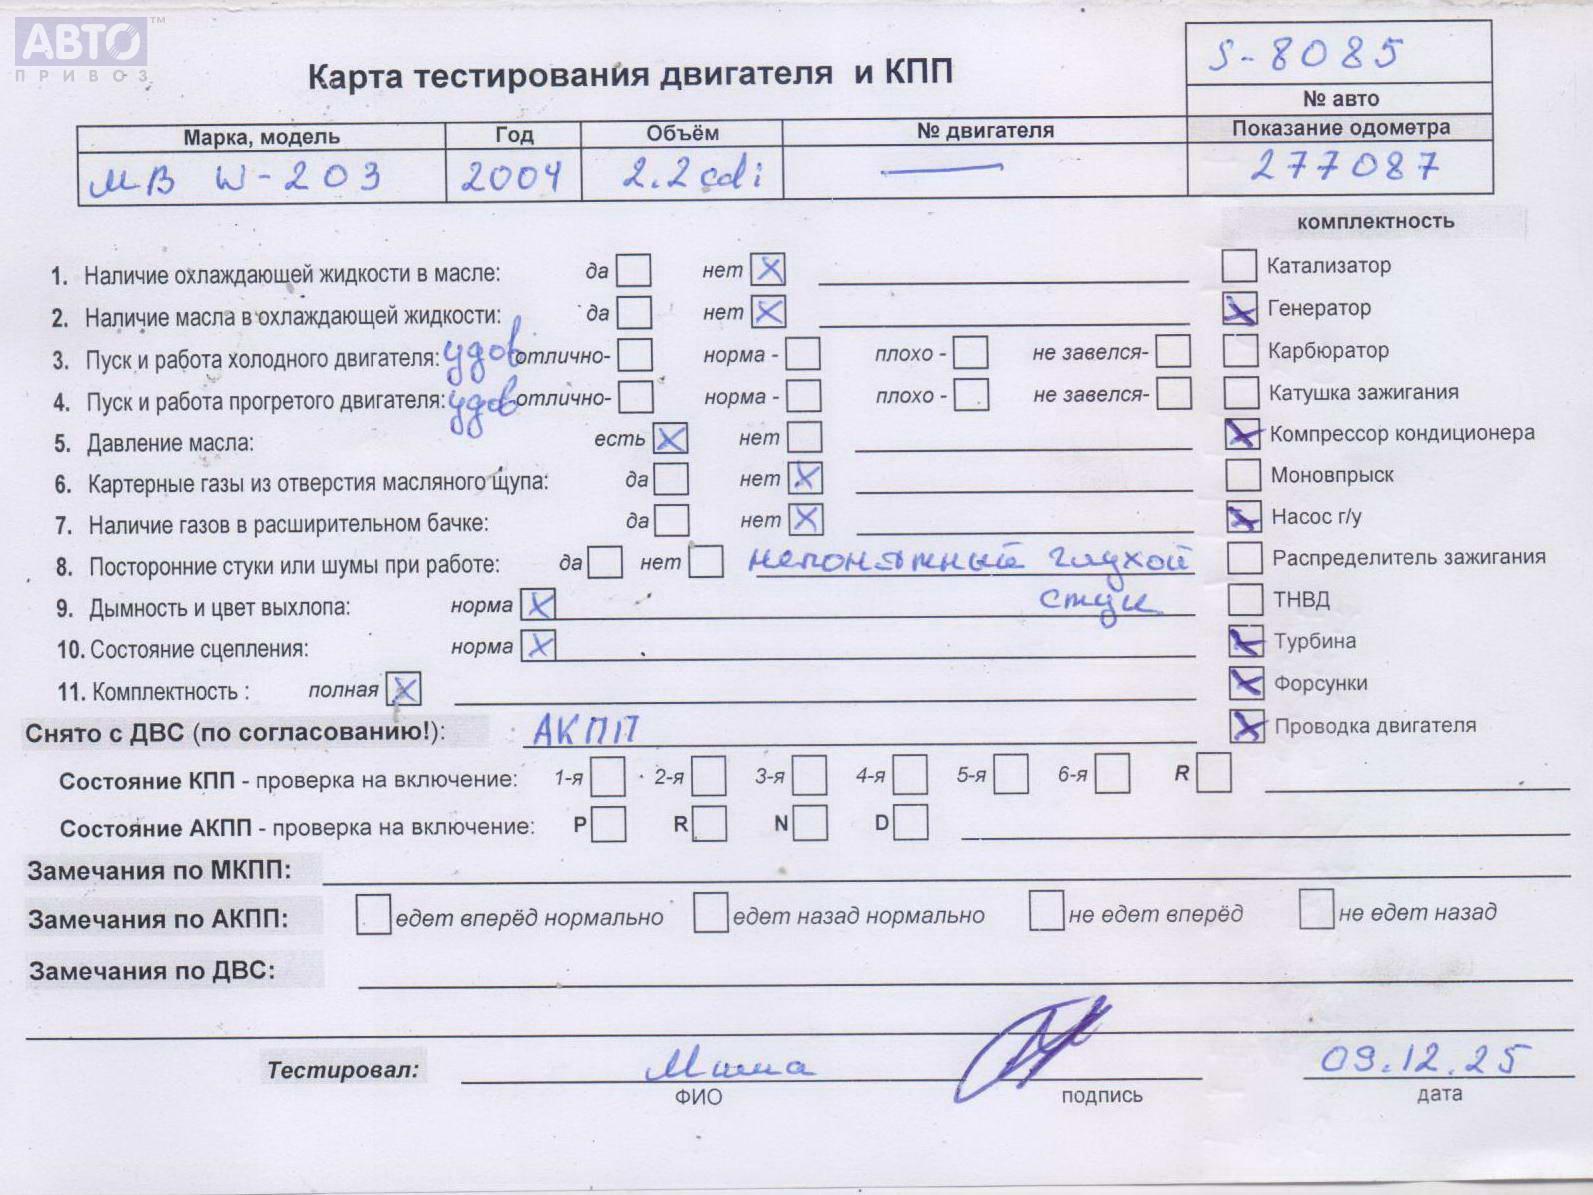 АВТО™
ПРИВОЗ
Карта тестирования двигателя и КПП
S-8085
№ авто
Марка, модель Год Объём № двигателя Показание одометра
МВ W-203 2004 2.2 cdi — 277087
комплектность
1. Наличие охлаждающей жидкости в масле: да нет X
Катализатор
2. Наличие масла в охлаждающей жидкости: да нет X
X Генератор
3. Пуск и работа холодного двигателя: удов отлично- норма - плохо - не завелся-
Карбюратор
4. Пуск и работа прогретого двигателя: удов отлично- норма - плохо - не завелся-
Катушка зажигания
5. Давление масла: есть X нет
X Компрессор кондиционера
6. Картерные газы из отверстия масляного щупа: да нет X
Моновпрыск
7. Наличие газов в расширительном бачке: да нет X
X Насос г/у
8. Посторонние стуки или шумы при работе: да нет непонятный глухой
Распределитель зажигания
9. Дымность и цвет выхлопа: норма X стук
ТНВД
10. Состояние сцепления: норма X
X Турбина
11. Комплектность : полная X
X Форсунки
Снято с ДВС (по согласованию!): АКПП
X Проводка двигателя
Состояние КПП - проверка на включение: 1-я 2-я 3-я 4-я 5-я 6-я R
Состояние АКПП - проверка на включение: P R N D
Замечания по МКПП:
Замечания по АКПП: едет вперёд нормально едет назад нормально не едет вперёд не едет назад
Замечания по ДВС:
Тестировал: Миша 09.12.25
ФИО подпись дата